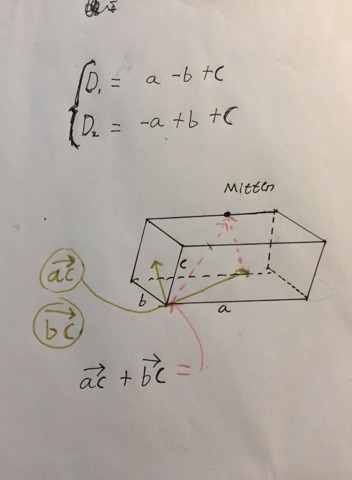 D₁ = a - b + c
D₂ = -a + b + c
Mitten
c
b
a
ac
bc
ac + bc =